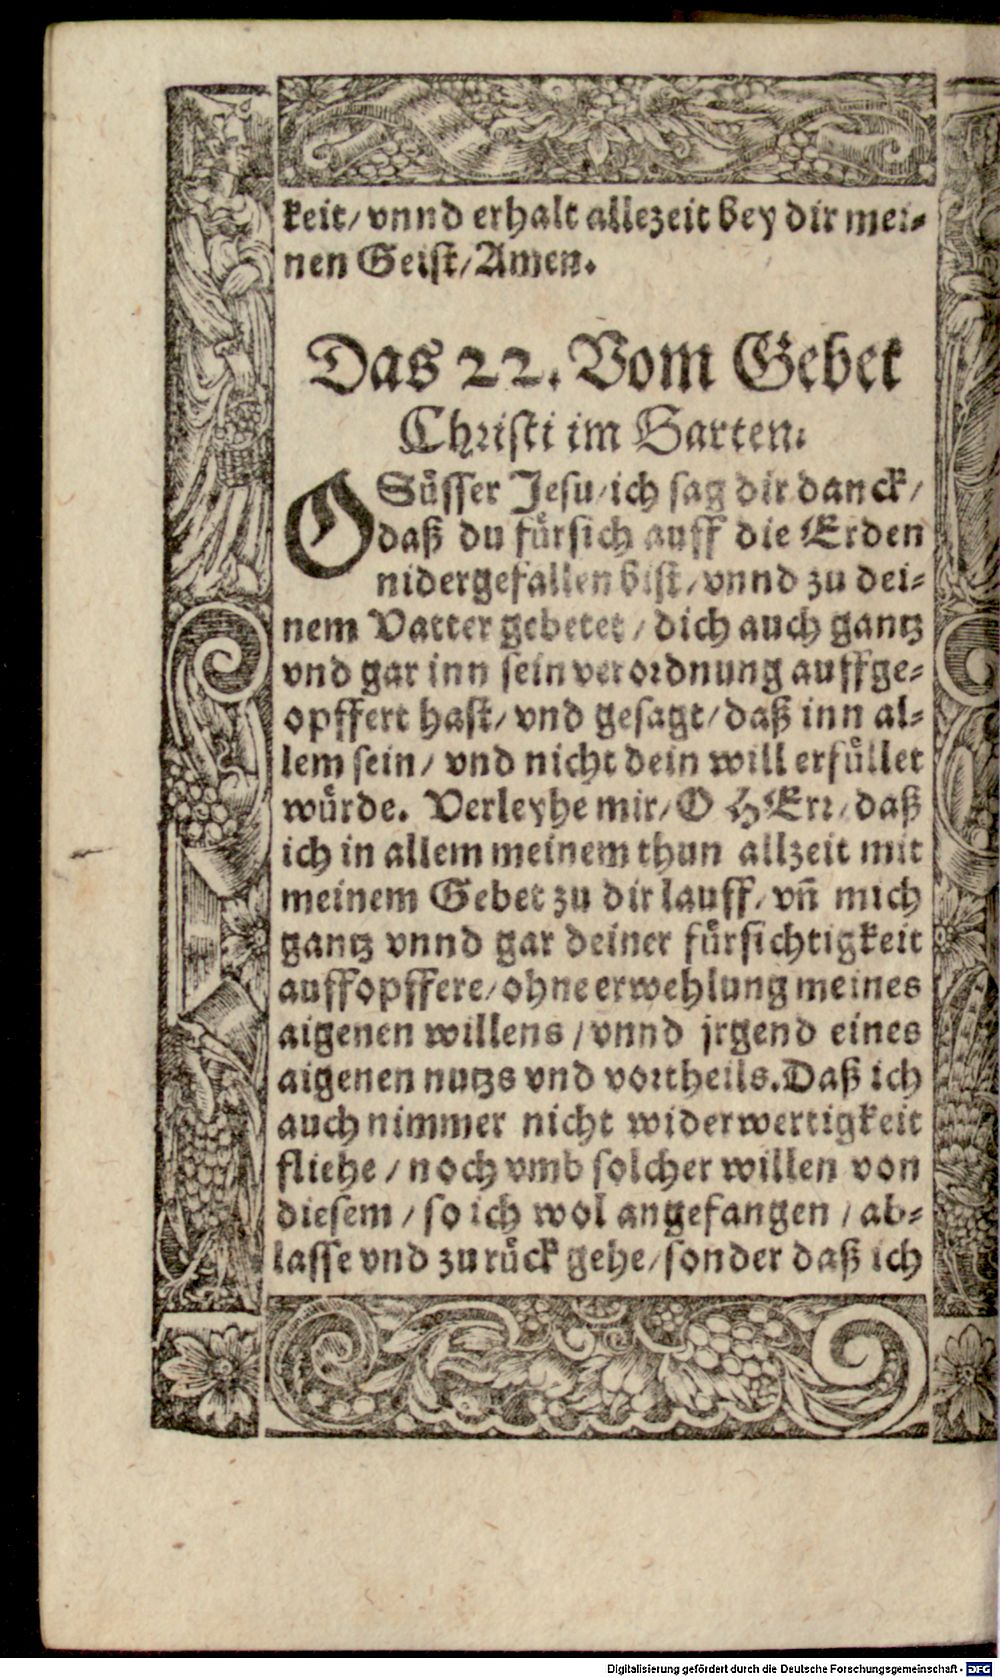 keit/ vnnd erhalt allezeit bey dir mei⸗
nen Geist/ Amen.
Das 22. Vom Gebet
Christi im Garten.
O Süsser Jesu/ ich sag dir danck/
daß du fürsich auff die Erden
nidergefallen bist/ vnnd zu dei⸗
nem Vatter gebetet/ dich auch gantz
vnd gar inn sein verordnung auffge⸗
opffert hast/ vnd gesagt/ daß inn al⸗
lem sein/ vnd nicht dein will erfüllet
würde. Verleyhe mir/ O HErr/ daß
ich in allem meinem thun allzeit mit
meinem Gebet zu dir lauff/ vñ mich
gantz vnnd gar deiner fürsichtigkeit
auffopffere/ ohne erwehlung meines
aigenen willens/ vnnd jrgend eines
aigenen nutzs vnd vortheils. Daß ich
auch nimmer nicht widerwertigkeit
fliehe/ noch vmb solcher willen von
diesem/ so ich wol angefangen/ ab⸗
lasse vnd zu rück gehe/ sonder daß ich
Digitalisierung gefördert durch die Deutsche Forschungsgemeinschaft - DFG